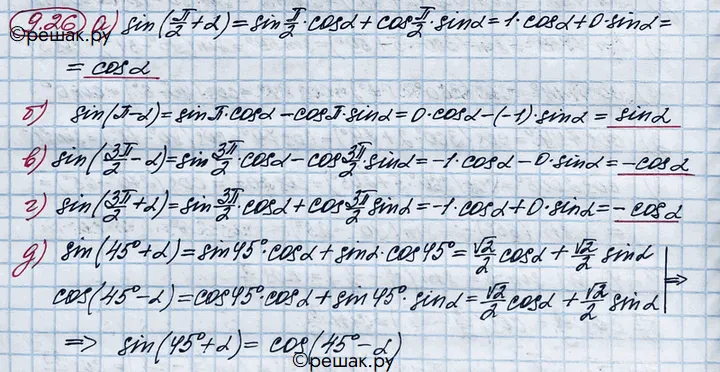 9.26 а) sin(π/2+α)=sin π/2·cosα+cos π/2·sinα=1·cosα+0·sinα=
©решак.ру
= cosα
б) sin(π-α)=sinπ·cosα-cosπ·sinα=0·cosα-(-1)·sinα=sinα
в) sin(3π/2-α)=sin 3π/2·cosα-cos 3π/2 sinα=-1·cosα-0·sinα=-cosα
г) sin(3π/2+α)=sin 3π/2·cosα+cos 3π/2 sinα=-1·cosα+0·sinα=-cosα
д) sin(45°+α)=sin45°·cosα+sinα·cos45°=√2/2 cosα+√2/2 sinα
cos(45°-α)=cos45°·cosα+sin45°·sinα=√2/2 cosα+√2/2 sinα |⇒
⇒ sin(45°+α)= cos(45°-α)
©решак.ру